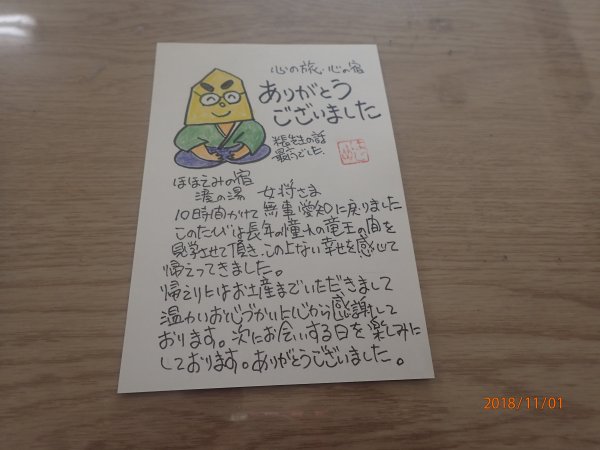 心の旅、心の宿
ありがとう
ございました
先生の話
最高でした
ほほえみの宿
滝の湯 女将さま
10時間かけて無事愛知に戻りました
このたびは長年の憧れの竜王の間を
見学させて頂き、この上ない幸せを感じて
帰えってきました。
帰えりにはお土産までいただきまして
温かいお心づかいに心から感謝して
おります。次にお会いする日を楽しみに
しております。ありがとうございました。
2018/11/01